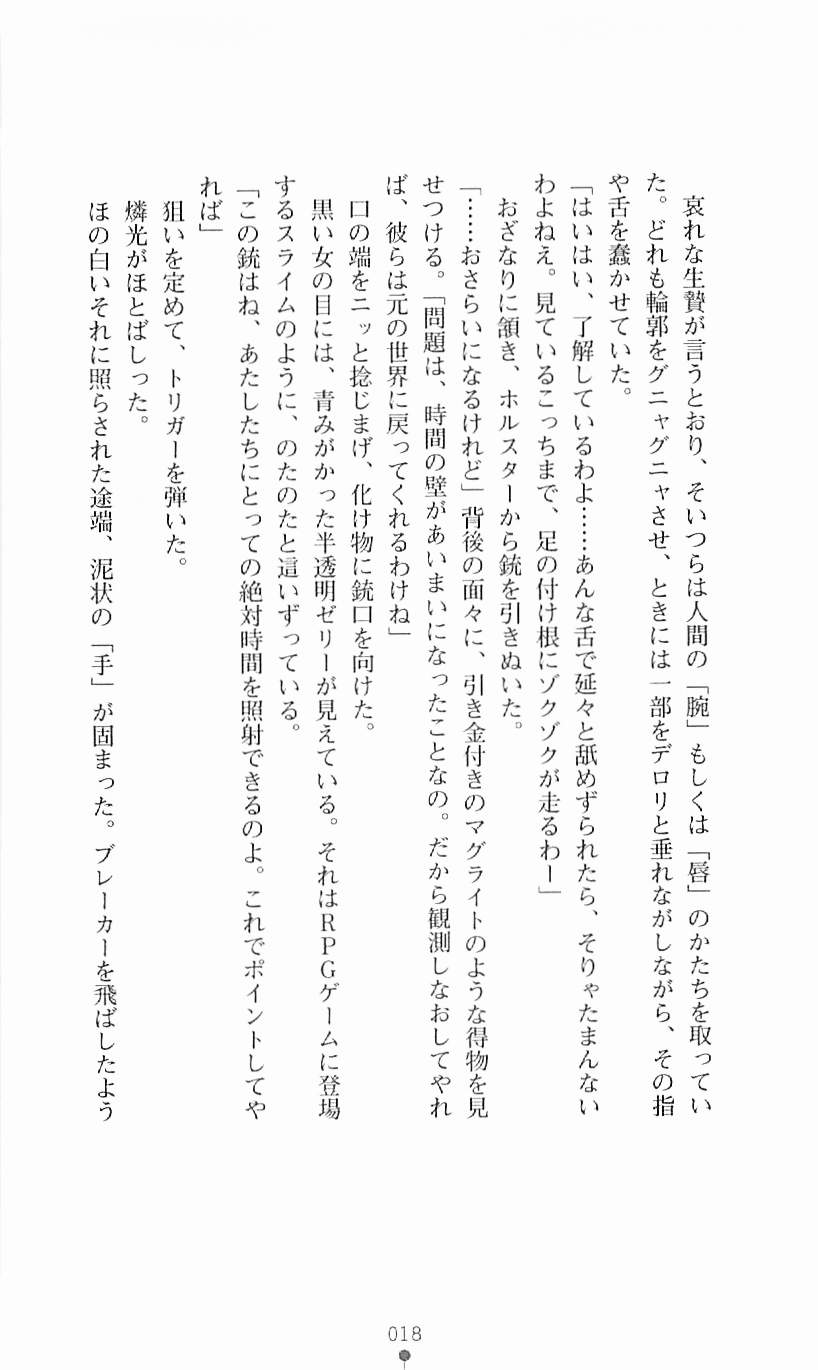 哀れな生贄が言うとおり、そいつらは人間の「腕」もしくは「唇」のかたちを取ってい
た。どれも輪郭をグニャグニャさせ、ときには一部をデロリと垂れながしながら、その指
や舌を蠢かせていた。
「はいはい、了解しているわよ……あんな舌で延々と舐めずられたら、そりゃたまんない
わよねえ。見ているこっちまで、足の付け根にゾクゾクが走るわー」
おざなりに頷き、ホルスターから銃を引きぬいた。
「……おさらいになるけれど」背後の面々に、引き金付きのマグライトのような得物を見
せつける。「問題は、時間の壁があいまいになったことなの。だから観測しなおしてやれ
ば、彼らは元の世界に戻ってくれるわけね」
口の端をニッと捻じまげ、化け物に銃口を向けた。
黒い女の目には、青みがかった半透明ゼリーが見えている。それはRPGゲームに登場
するスライムのように、のたのたと這いずっている。
「この銃はね、あたしたちにとっての絶対時間を照射できるのよ。これでポイントしてや
れば」
狙いを定めて、トリガーを弾いた。
燐光がほとばしった。
ほの白いそれに照らされた途端、泥状の「手」が固まった。ブレーカーを飛ばしたよう
018